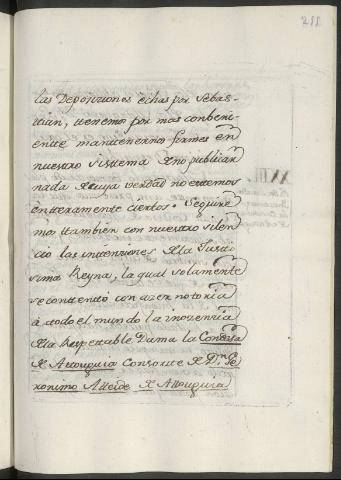 211
las Deposiziones echas por Sebas-
tian, tenemo por mas conbeni-
ente mantenerno firmes en
nuestro Sistema de no publicar
nada de cuya verdad no estemos
entteramente ciertos. Seguire-
mo ttambien con nuestro silen-
cio las intenziones de la Justi-
sima Reyna, la qual solamente
se conttentó con azer notoria
á ttodo el mundo la inozenzia
de la Respettable Dama la Condesa
de Attouguia Consorte de Dn. Ge-
ronimo Atteide de Attouguia